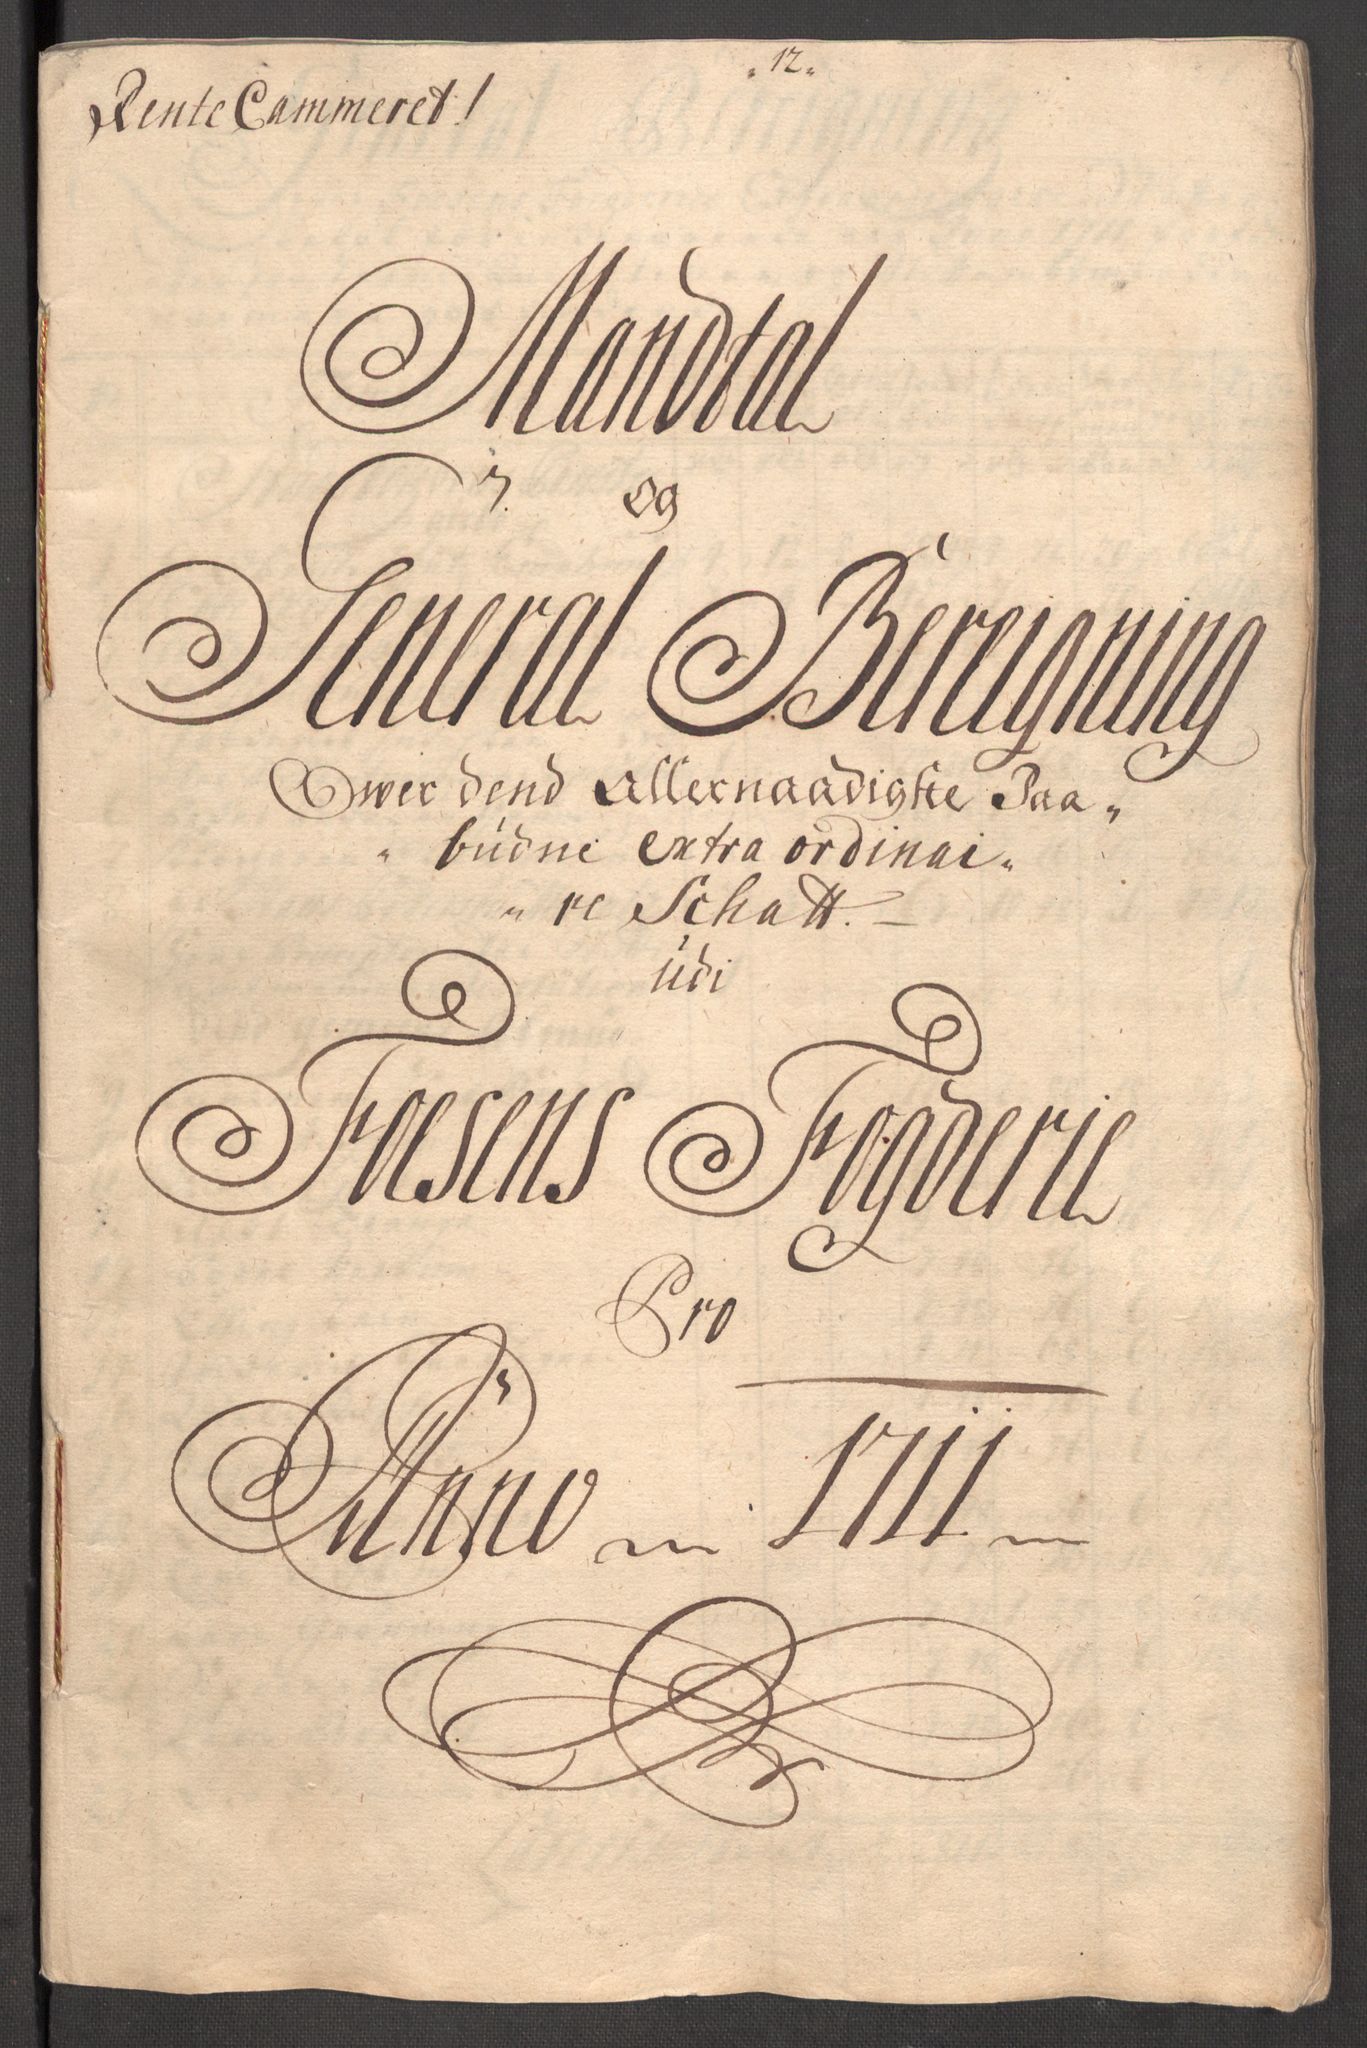 „ 12 „
Rente Cammeret!
Mandtal
og
General Bereigning
Ower dend allernaadigste Paa„
„ budne extra ordinai„
„ re Schatt.
udi
Foesens Fogderie
Pro
Anno 1711